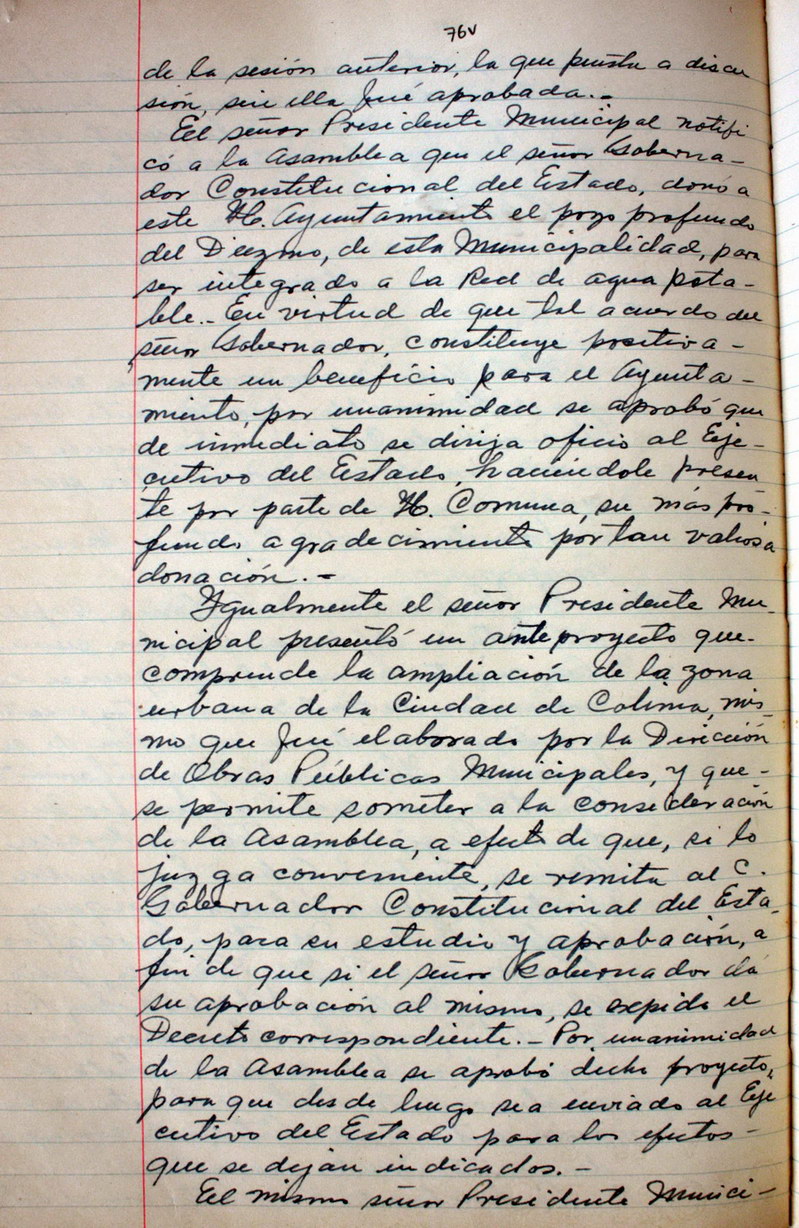 76v
de la sesión anterior, la que puesta a discu
sión, sin ella fué aprobada.-
El señor Presidente Municipal notifi
có a la Asamblea que el señor Goberna-
dor Constitucional del Estado, donó a
este H. Ayuntamiento el pozo profundo
del Diezmo, de esta Municipalidad, para
ser integrado a la Red de agua pota-
ble.- En virtud de que tal acuerdo del
señor Gobernador, constituye positiva-
mente un beneficio para el Ayunta-
miento, por unanimidad se aprobó que
de inmediato se dirija oficio al Eje-
cutivo del Estado, haciéndole presen
te por parte de H. Comuna, su más pro-
fundo agradecimiento por tan valiosa
donación.-
Igualmente el señor Presidente Mu-
nicipal presentó un anteproyecto que-
comprende la ampliación de la zona
urbana de la Ciudad de Colima, mis-
mo que fué elaborado por la Dirección
de Obras Públicas Municipales, y que-
se permite someter a la consideración
de la Asamblea, a efecto de que, si lo
juzga conveniente, se remita al C.
Gobernador Constitucional del Esta-
do, para su estudio y aprobación, a
fin de que si el señor Gobernador dá
su aprobación al mismo, se expida el
Decreto correspondiente.- Por unanimidad
de la Asamblea se aprobó dicho proyecto,
para que desde luego sea enviado al Eje
cutivo del Estado para los efectos-
que se dejan indicados.-
El mismo señor Presidente Munici-